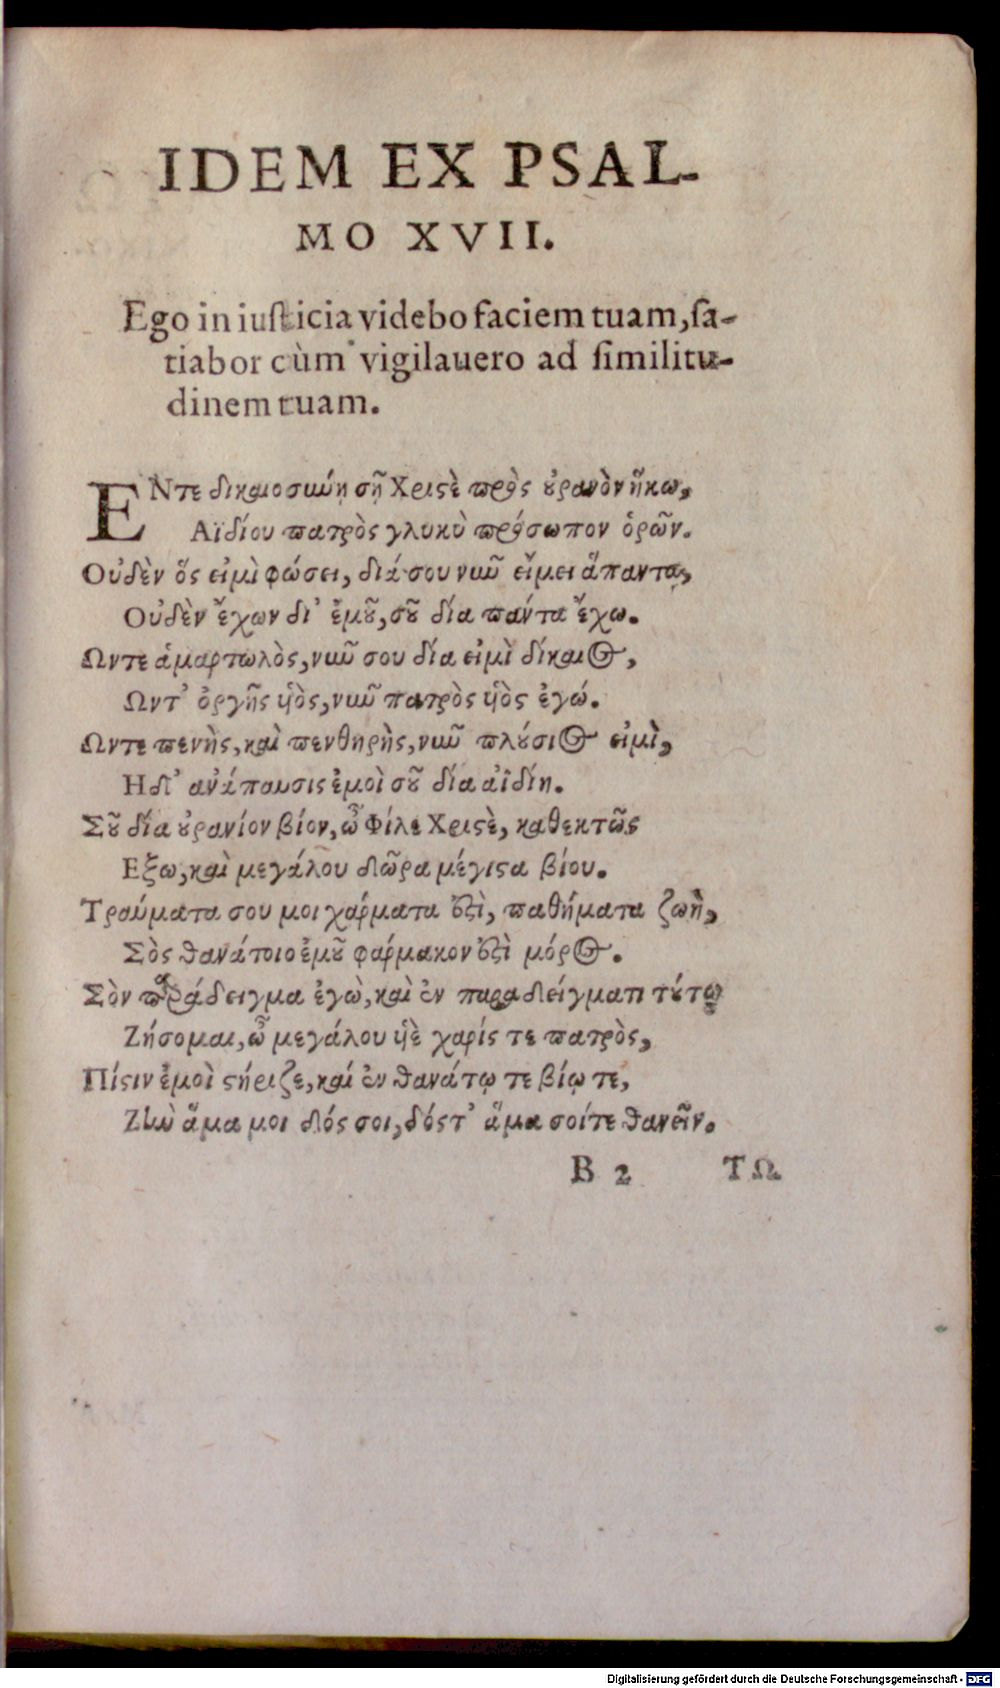 IDEM EX PSAL-
MO XVII.
Ego in iusticia videbo faciem tuam, sa-
tiabor cùm vigilauero ad similitu-
dinem tuam.
ΕΝτε δικαιοσύνῃ σῇ Χριϛὲ πρὸς ȣ̓ρανὸν ἥκω,
Αϊδίου πατρὸς γλυκὺ πρόσωπον ὁρῶν.
Οὐδὲν ὅς εἰμὶ φώσει, διά σου νυῦ εἴμει ἅπαντα,
Οὐδὲν ἔχων δι’ ἐμȣ͂, σȣ͂ δία πάντα ἔχω.
Ωντε ἁμαρτωλὸς, νυῦ σου δία εἰμὶ δίκαιος,
Ωντ’ ὀργῆς ὑὸς, νυῦ πατρὸς ὑὸς ἐγώ.
Ωντε πενὴς, καὶ πενθηρὴς, νυῦ πλȣ́σιος εἰμὶ,
Ηδ’ ἀνάπαυσις ἐμοὶ σȣ͂ δία ἀϊδίη.
Σȣ͂ δία ȣ̓ρανίον βίον, ὦ Φίλε Χριϛὲ, καθεκτῶς
Εξω, καὶ μεγάλου δῶρα μέγιϛα βίου.
Τραύματα σου μοι χάρματα ἐϛὶ, παθήματα ζωὴ,
Σὸς θανάτοιο ἐμȣ͂ φάρμακον ἐϛὶ μόρος.
Σὸν παράδειγμα ἐγὼ, καὶ ἐν παραδείγματι τȣ́τῳ
Ζήσομαι, ὦ μεγάλου ὑὲ χαρίς τε πατρὸς,
Πίϛιν ἐμοὶ ϛήριζε, καί ἐν θανάτῳ τε βίῳ τε,
Ζῆν ἅμα μοι δός σοι, δόςτ’ ἅμα σοίτε θανεῖν.
B 2 ΤΩ
Digitalisierung gefördert durch die Deutsche Forschungsgemeinschaft - DFG